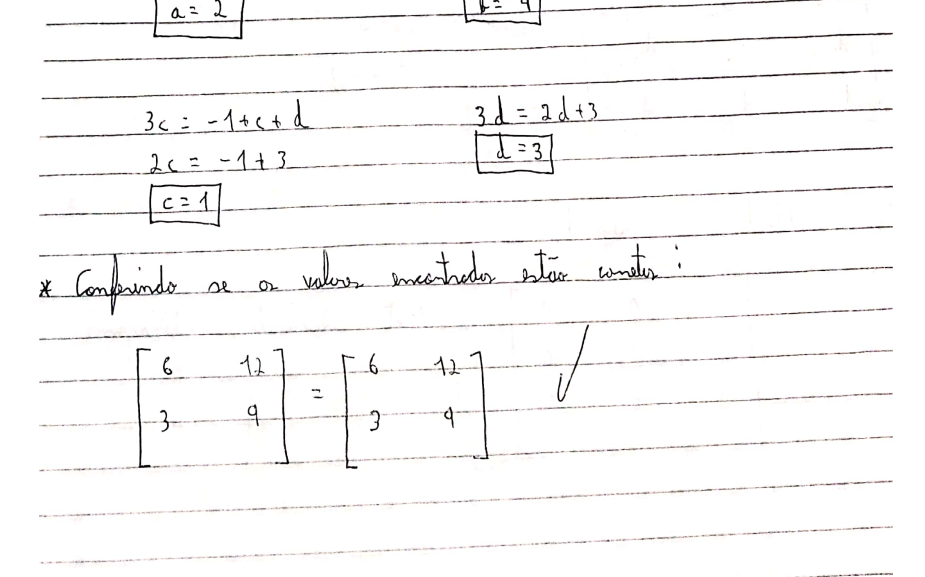 a = 2 b = 4
3c = -1+c+d 3d = 2d+3
2c = -1+3 d = 3
c = 1
* Conferindo se os valores encontrados estão corretos:
6 12 = 6 12
3 9 3 9